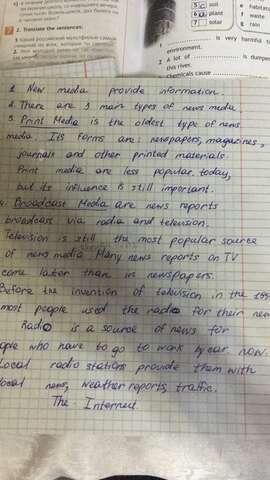 2. Translate the sentences:
1. New media provide information.
2. There are 3 main types of news media
3. Print Media is the oldest type of news
media. Its forms are: newspapers, magazines,
journals and other printed materials.
Print media are less popular today,
but its influence is still important.
4. Broadcast Media are news reports
broadcast via radio and television.
Television is still the most popular source
of news media. Many news reports on TV
come later than in newspapers.
Before the invention of television in the
most people used the radio for their
Radio is a source of news for
ople who have to go to work by car. now.
Local radio stations provide them with
local news, weather reports, traffic.
The Internet
5 c soil
6 d plant
7 solar
is very harmful
environment.
A lot of
this river.
chemicals cause
e
f waste
g rain